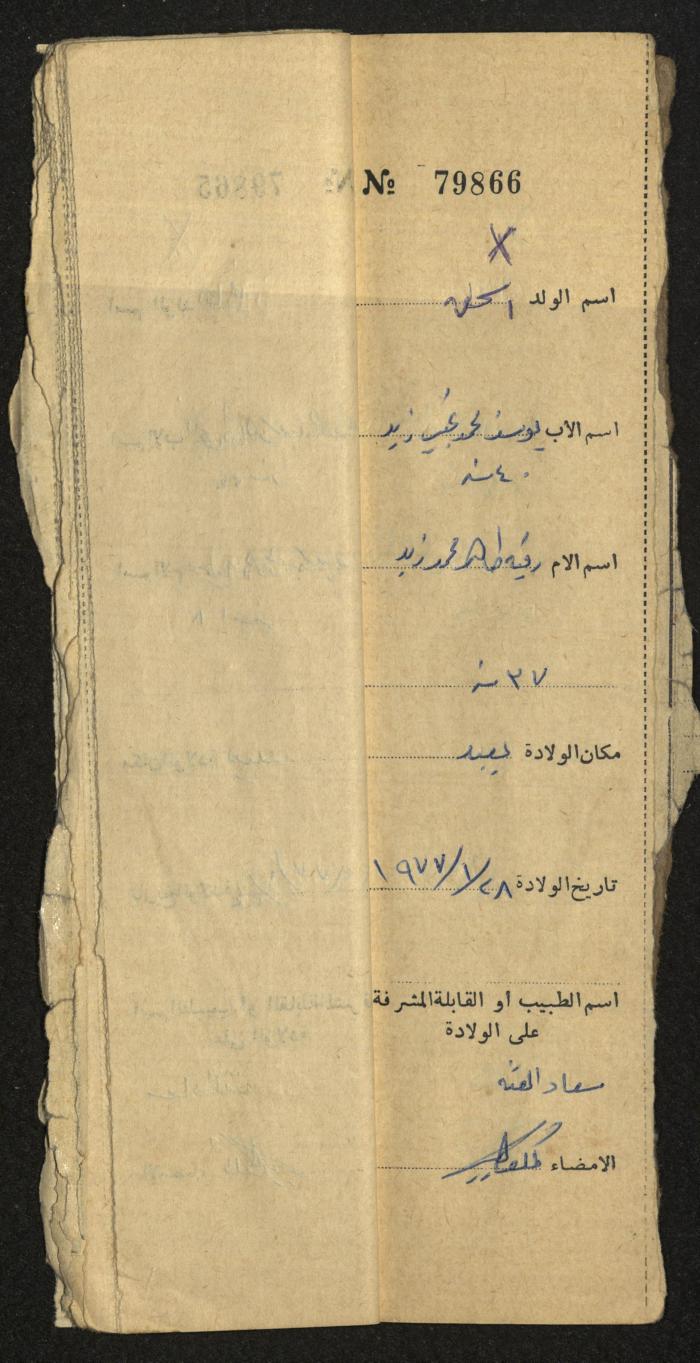 № 79866
X
اسم الولد
اسم الاب يوسف محمد زيد
٤٠ سنه
اسم الام رقيه طاهر محمد زيد
٣٧ سنه
مكان الولادة يعبد
تاريخ الولادة ٢٨/٧/١٩٧٧
اسم الطبيب أو القابلة المشرفة
على الولادة
سعاد
الامضاء